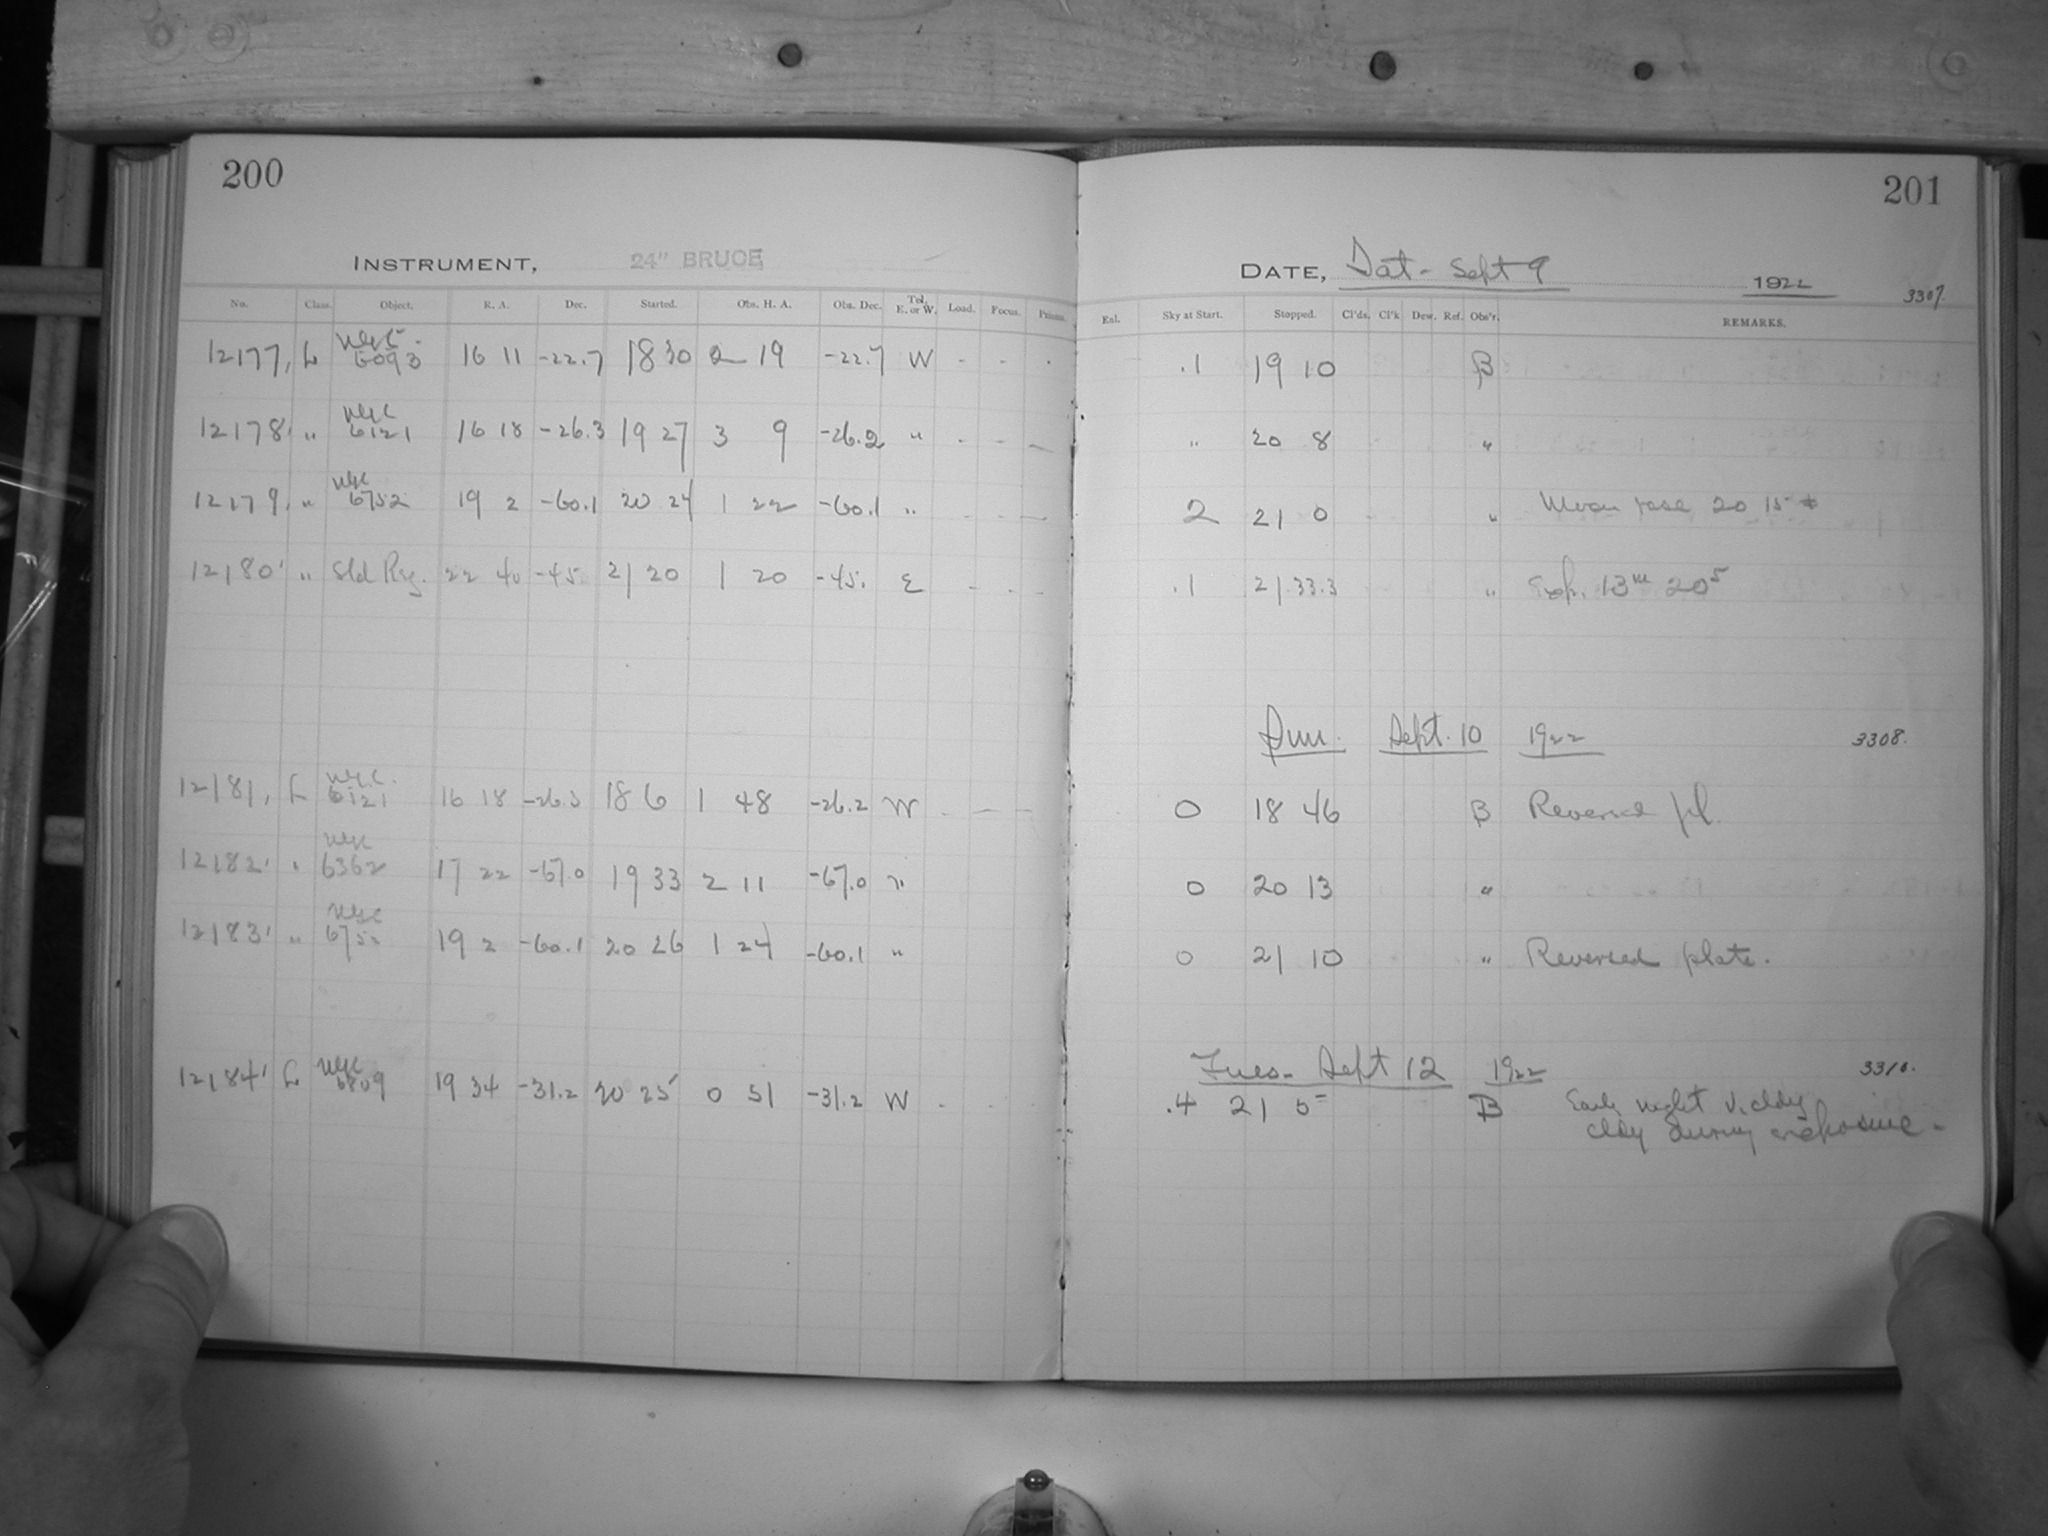 200
INSTRUMENT, 24" BRUCE
No. Class. Object. R. A. Dec. Started. Obs. H. A. Obs. Dec. Tel. E. or W. Load. Focus. Prisms.
12177, L NGC 6093 16 11 -22.7 18 30 2 19 -22.7 W - - .
12178' " NGC 6121 16 18 -26.3 19 27 3 9 -26.2 " - - -
12179, " NGC 6752 19 2 -60.1 20 24 1 22 -60.1 " - - -
12180' " Std Reg. 22 40 -45. 21 20 1 20 -45. E - - -
12181, L N.G.C. 6121 16 18 -26.3 18 6 1 48 -26.2 W - - -
12182' " NGC 6362 17 22 -67.0 19 33 2 11 -67.0 "
12183' " NGC 6752 19 2 -60.1 20 26 1 24 -60.1 "
12184' L NGC 6809 19 34 -31.2 20 25 0 51 -31.2 W -
201
DATE, Sat- Sept 9 1922
3307.
Exl. Sky at Start. Stopped. Cl'ds. Cl'k Dew. Ref. Obs'r. REMARKS.
.1 19 10 B
" 20 8 "
2 21 0 " Moon rose 20 15
.1 21.33.3 " Exp. 13m 20s
Sun. Sept. 10 1922 3308.
0 18 46 B Reversed pl.
0 20 13 "
0 21 10 " Reversed plate.
Tues- Sept 12 1922 3310.
.4 21 5 B Early night v. cldy
cldy during exposure-